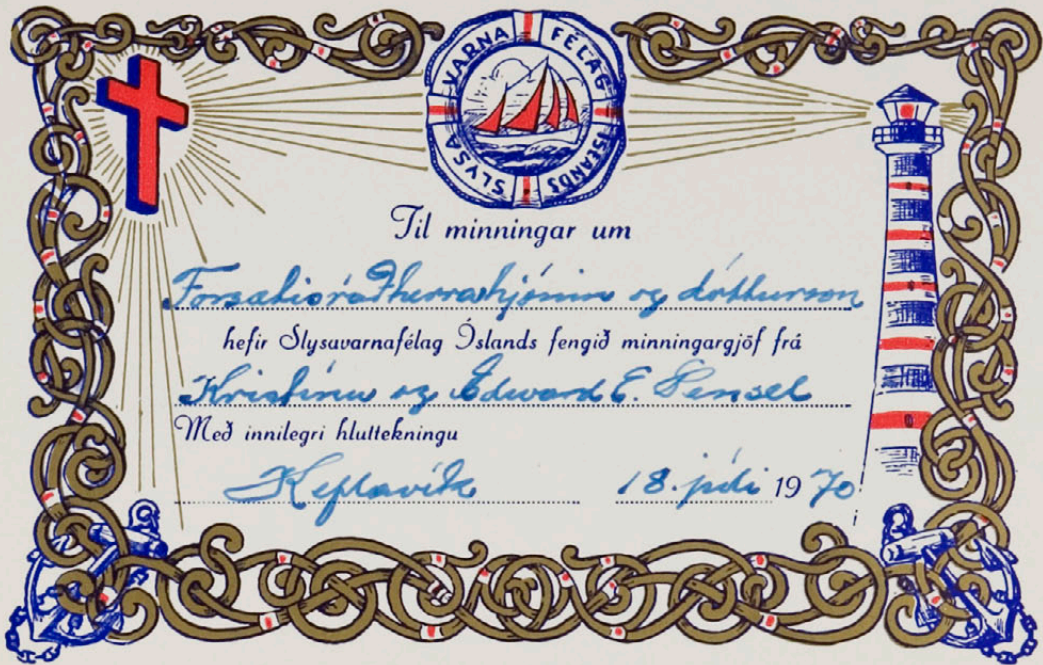 SLYSA VARNA FÉLAG ÍSLANDS
Til minningar um
Forsætisráðherrahjónin og dótturson
hefir Slysavarnafélag Íslands fengið minningargjöf frá
Kristínu og Edward E.
Með innilegri hluttekningu
Keflavík 18. júlí 1970